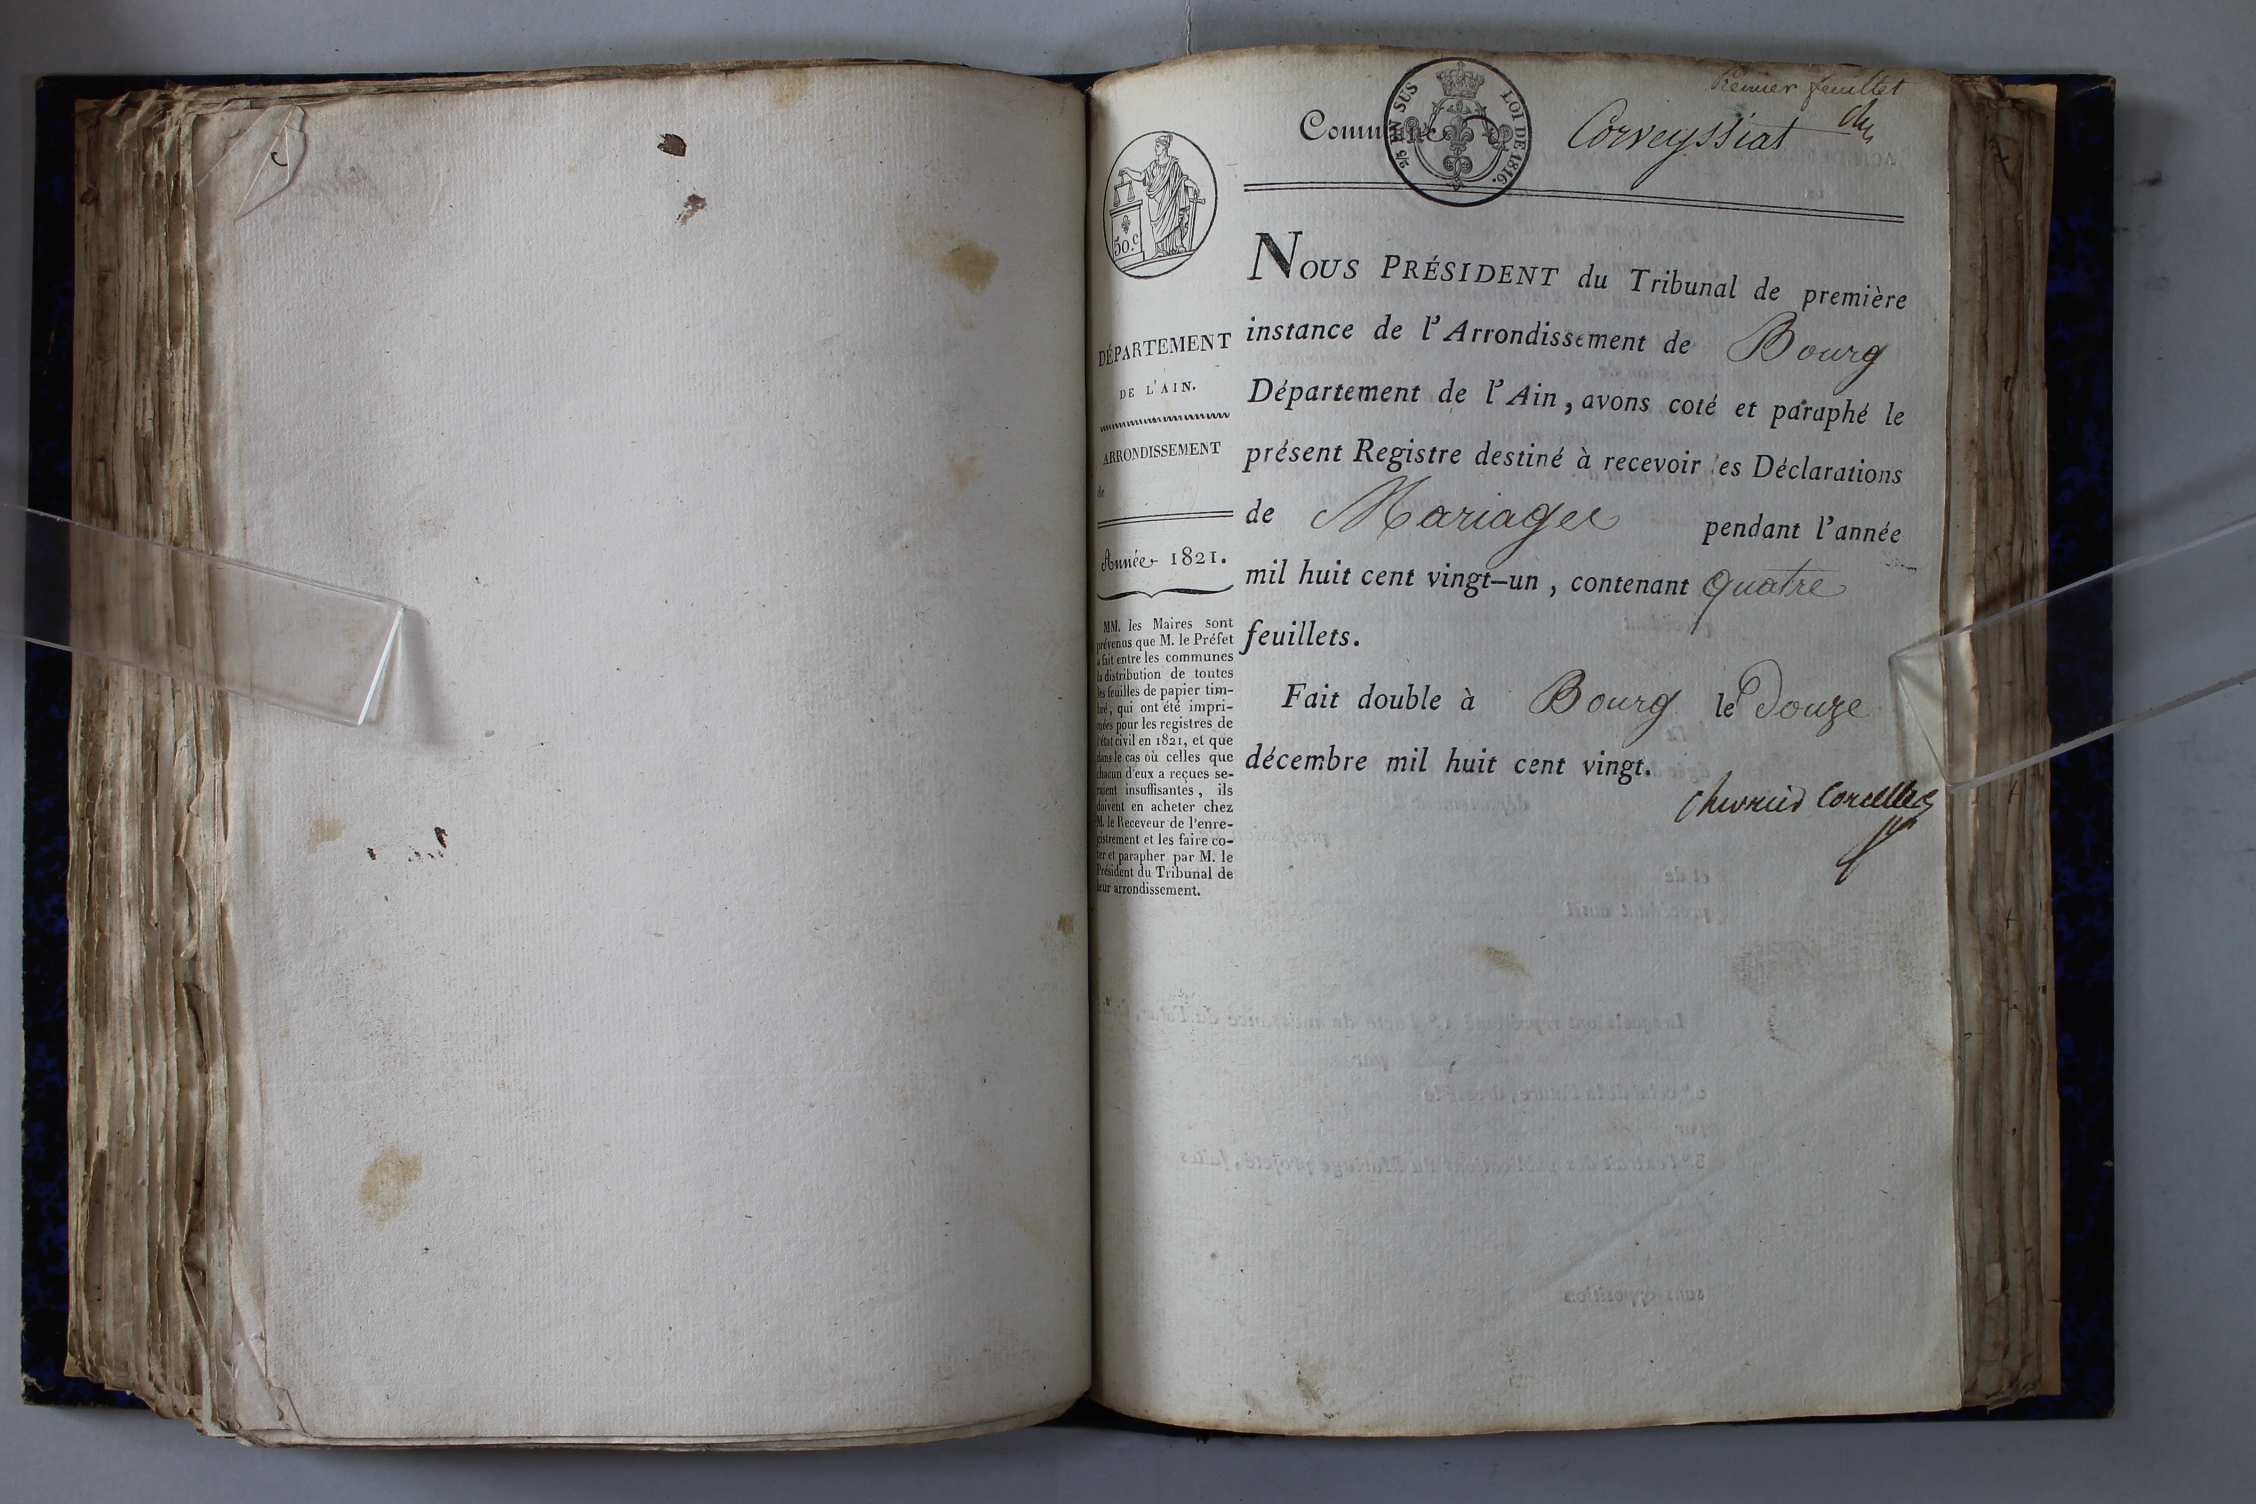 Premier feuillet
Commune Corveyssiat
2/5 EN SUS LOI DE 1816.
50.c
DÉPARTEMENT
DE L'AIN.
ARRONDISSEMENT
de
Année 1821.
MM. les Maires sont
prévenus que M. le Préfet
a fait entre les communes
la distribution de toutes
les feuilles de papier tim-
bré, qui ont été impri-
mées pour les registres de
l'état civil en 1821, et que
dans le cas où celles que
chacun d'eux a reçues se-
raient insuffisantes, ils
doivent en acheter chez
M. le Receveur de l'enre-
gistrement et les faire co-
ter et parapher par M. le
Président du Tribunal de
leur arrondissement.
NOUS PRÉSIDENT du Tribunal de première
instance de l'Arrondissement de Bourg
Département de l'Ain, avons coté et paraphé le
présent Registre destiné à recevoir les Déclarations
de Mariages pendant l'année
mil huit cent vingt-un, contenant quatre
feuillets.
Fait double à Bourg le douze
décembre mil huit cent vingt.